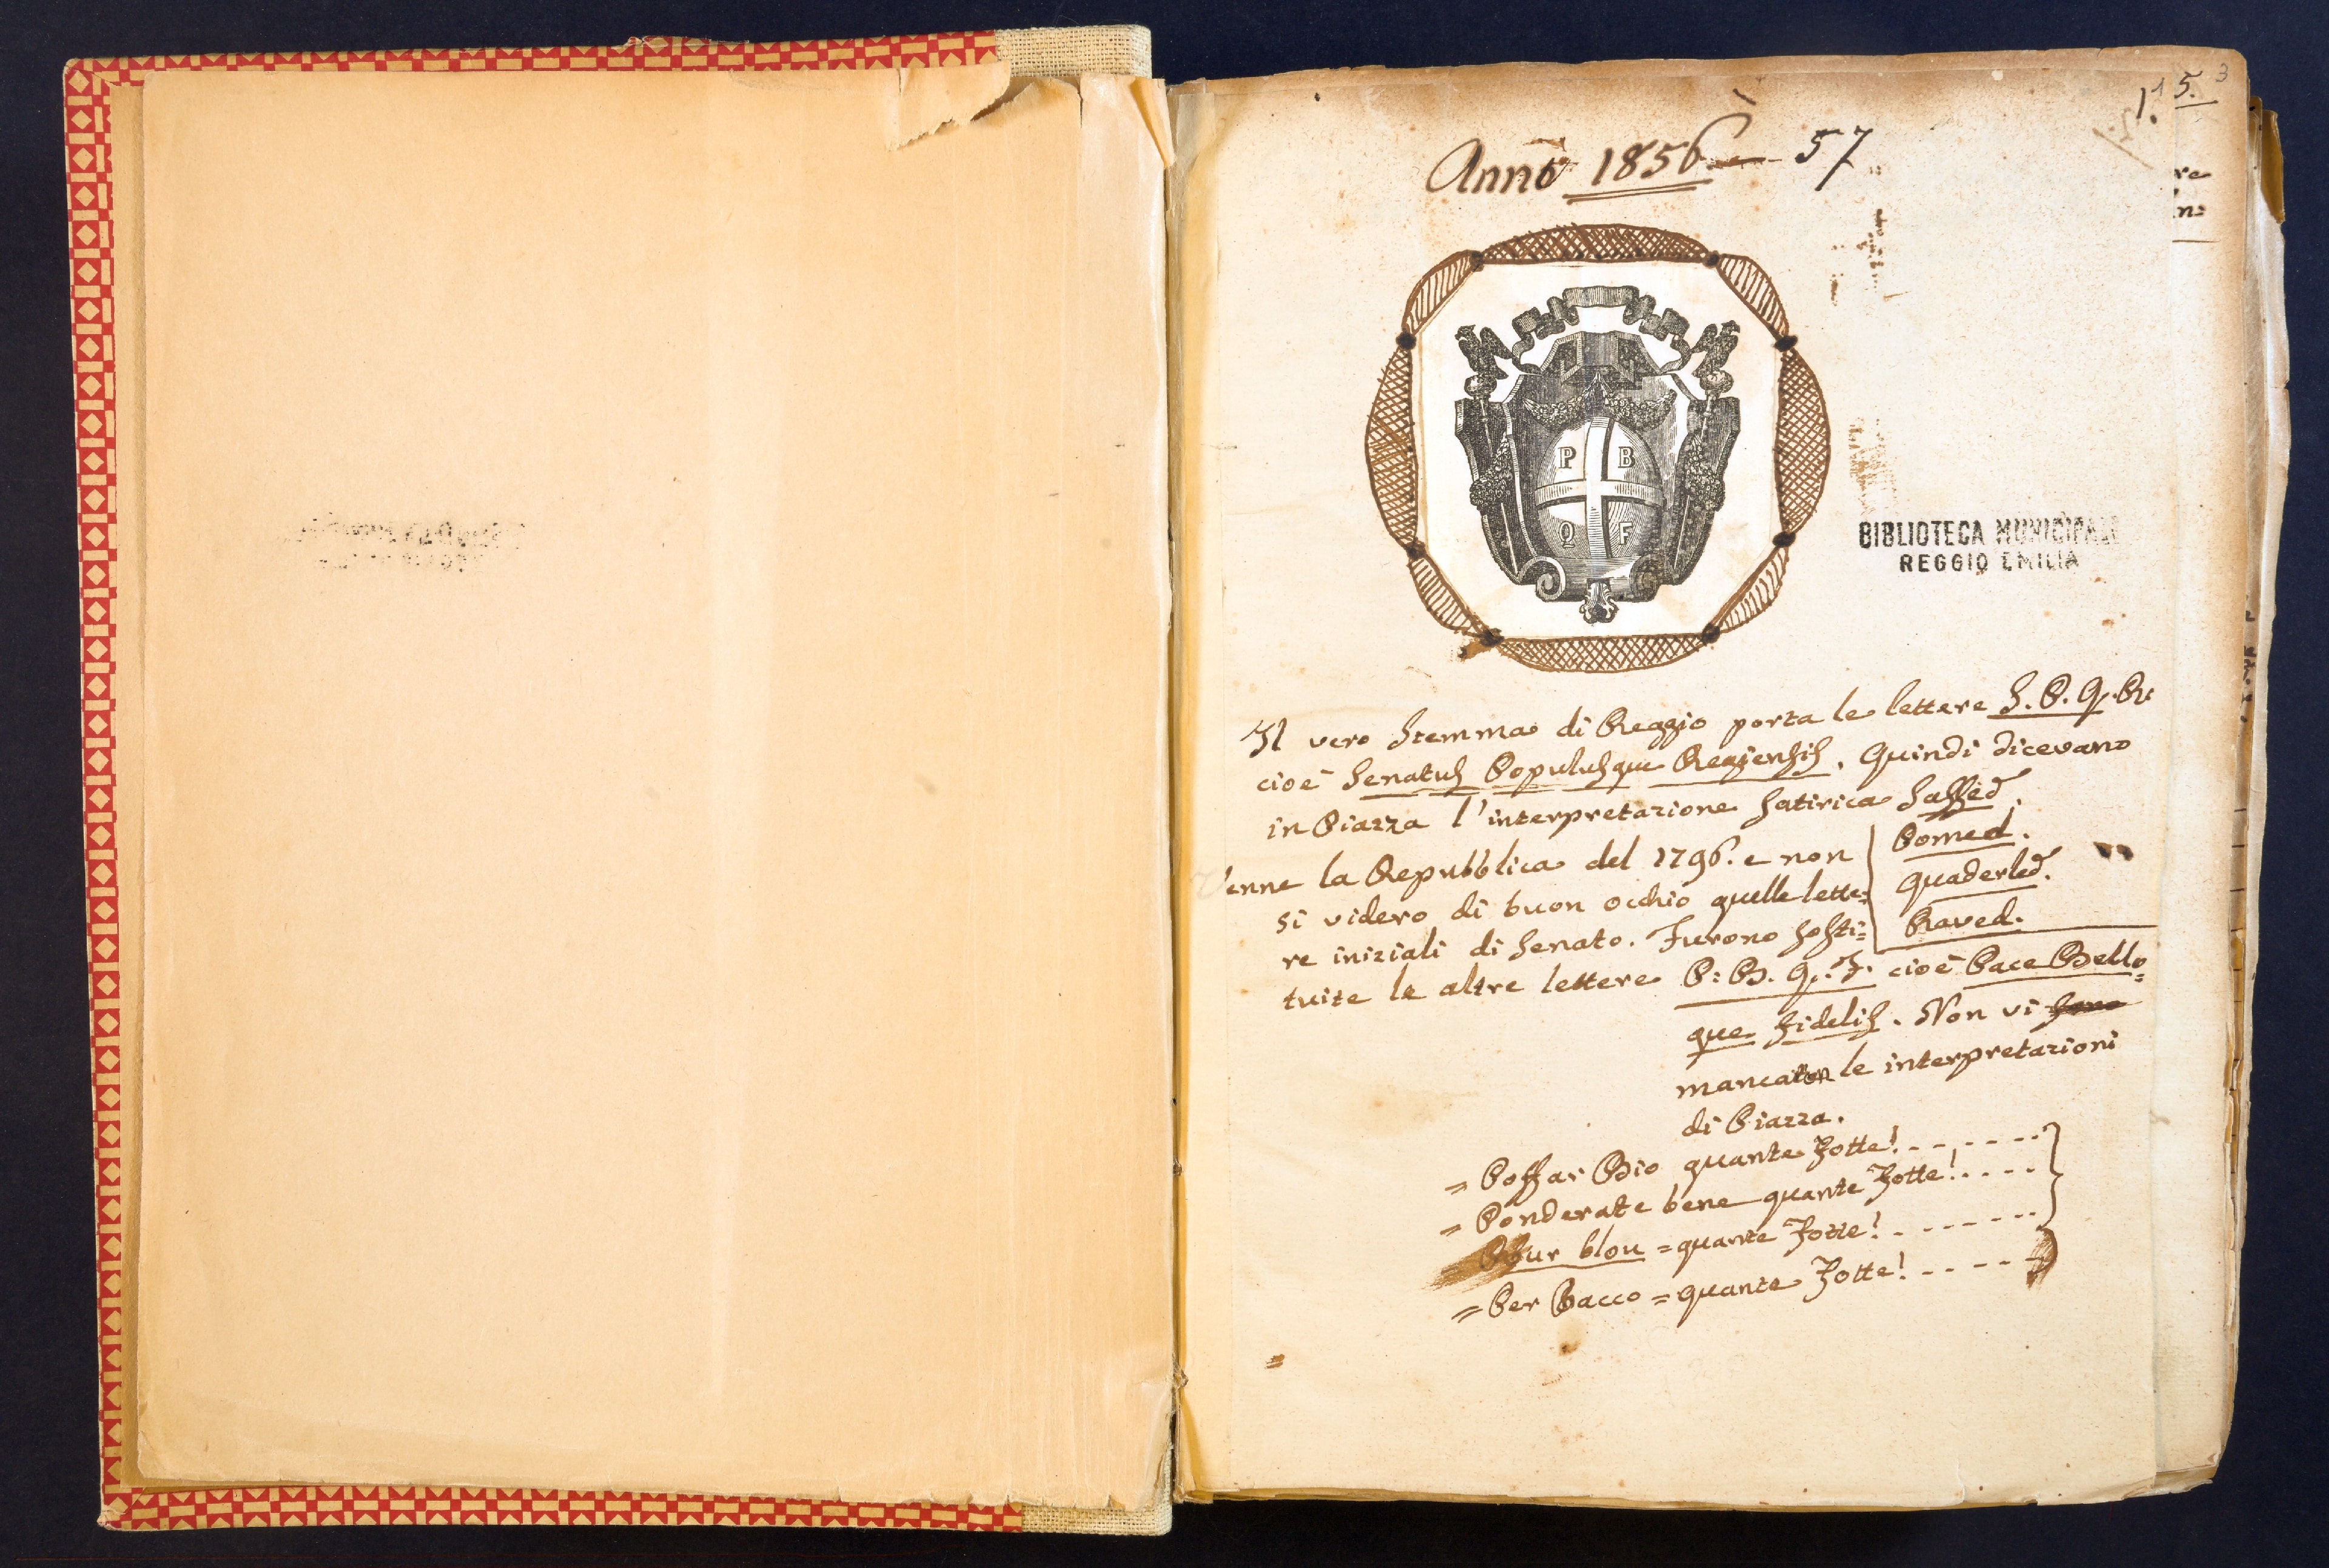 1. 5. 3
Anno 1856 — 57
P B
Q F
BIBLIOTECA MUNICIPALE
REGGIO EMILIA
Il vero Stemma di Reggio porta le lettere S. P. Q. R.
cioè Senatus Populusque Regiensis. Quindi dicevano
in Piazza l'interpretazione satirica Sassed.
Pomed.
Quaderled.
Raved.
Venne la Repubblica del 1796. e non
si videro di buon occhio quelle lette=
re iniziali di Senato. Furono sosti=
tuite le altre lettere P. B. Q. F. cioè Pace Bello=
que Fidelis. Non vi
mancaron le interpretazioni
di Piazza.
= Poffar Bio quante Fotte! - - - - - - -
= Ponderate bene quante Fotte! - - - -
= Pour blou = quante Fotte! - - - - - - -
= Per Bacco = quante Fotte! - - - - -
=
re
n=